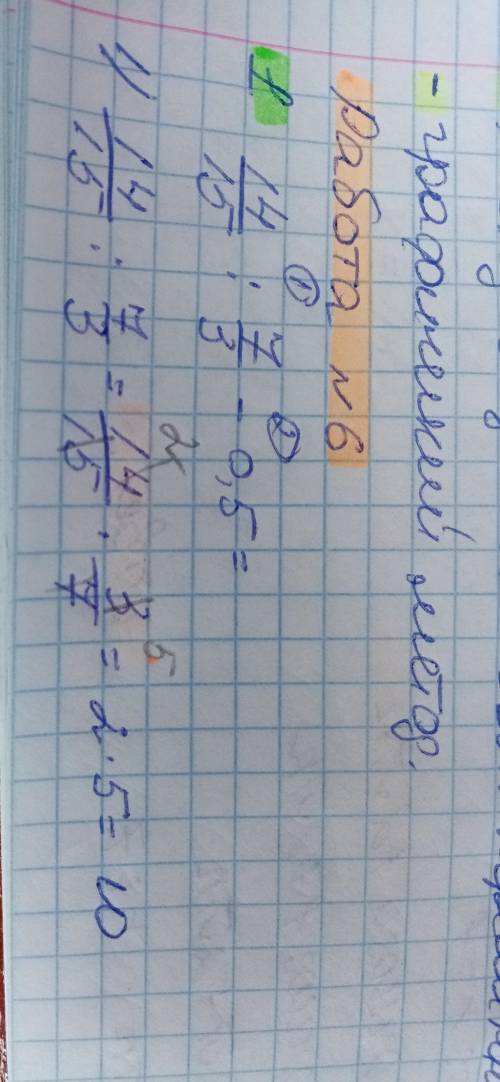 - графический метод.
Работа №6
1
14/15 : 7/3 - 0,5 =
1) 14/15 : 7/3 = 14/15 · 3/7 = 2 · 5 = 10